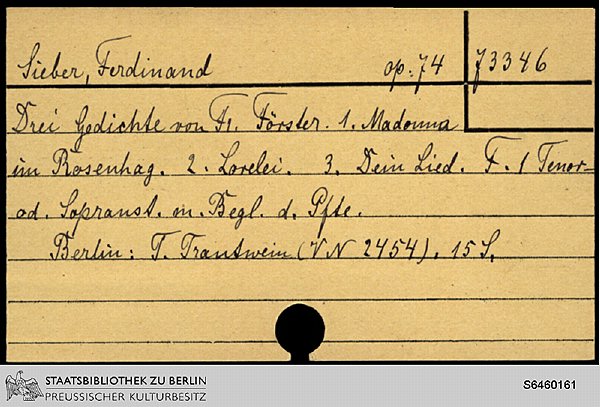 Sieber, Ferdinand op. 74 J 3346
Drei Gedichte von Fr. Förster. 1. Madonna
im Rosenhag. 2. Lorelei. 3. Dein Lied. F. 1 Tenor-
od. Sopranst. m. Begl. d. Pfte.
Berlin: T. Trautwein (VN 2454). 15 S.
STAATSBIBLIOTHEK ZU BERLIN
PREUSSISCHER KULTURBESITZ
S6460161